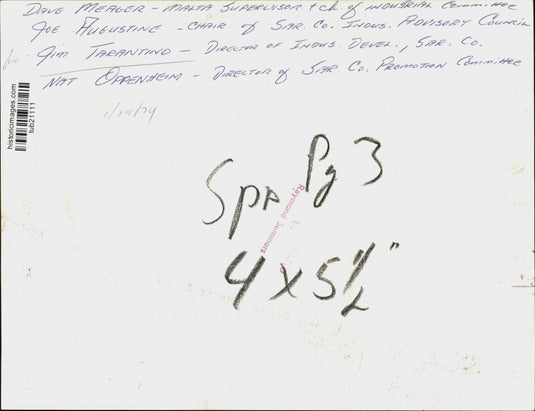 DAVE MEAGER - MALTA SUPERVISOR + ch of INDUSTRIAL Committee
JOE AUGUSTINE - CHAIR. of SAR. CO. INDUS. ADVISORY COUNCIL
JIM TARANTINO - DIRECTOR OF INDUS. DEVEL., SAR. CO.
NAT OPPENHEIM - DIRECTOR of SAR. CO. PROMOTION COMMITTEE
1/29/74
historicimages.com
tub21111
Spa Pg 3
Raymond Summers
4 x 5 1/2"